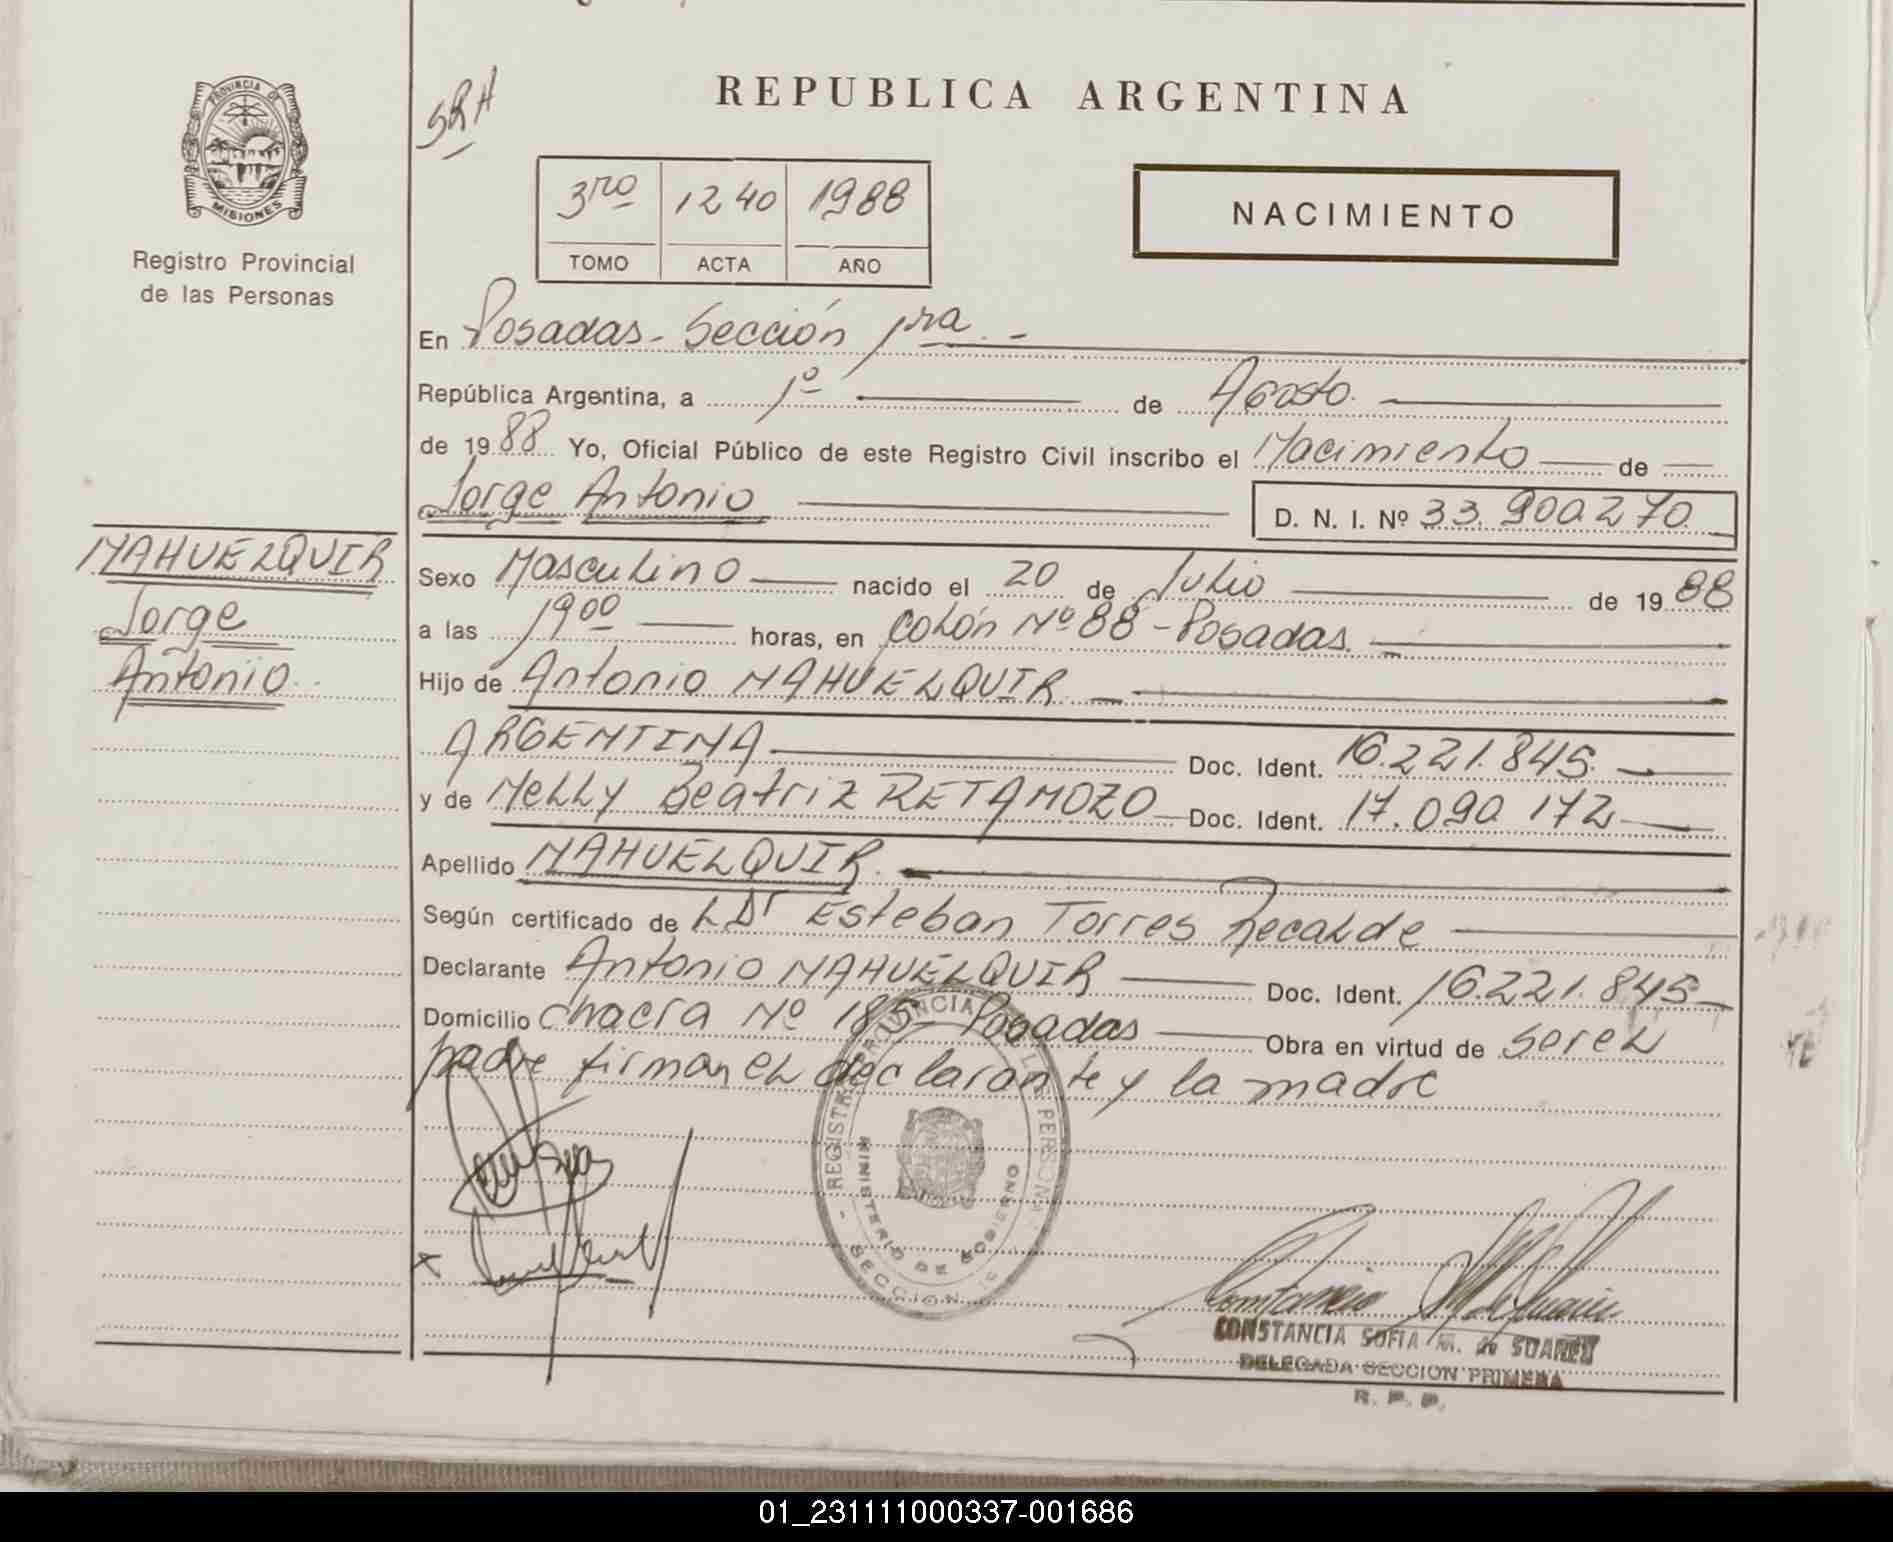 PROVINCIA DE
MISIONES
Registro Provincial
de las Personas
SRH
REPUBLICA ARGENTINA
3ro 1240 1988
TOMO ACTA AÑO
NACIMIENTO
En Posadas - Sección 1ra. -
República Argentina, a 1º de Agosto.
de 1988 Yo, Oficial Público de este Registro Civil inscribo el Nacimiento de
Jorge Antonio D. N. I. Nº 33.900.270
MAHUELQUIR
Jorge
Antonio
Sexo Masculino nacido el 20 de Julio de 1988
a las 1900 horas, en Colón Nº 88 - Posadas.
Hijo de Antonio MAHUELQUIR.
ARGENTINA Doc. Ident. 16.221.845.
y de Nelly Beatriz RETAMOZO Doc. Ident. 17.090 172
Apellido MAHUELQUIR.
Según certificado de L Dr Esteban Torres Recalde
Declarante Antonio MAHUELQUIR Doc. Ident. 16.221.845
Domicilio Chacra Nº 185 - Posadas Obra en virtud de ser el
padre firman el declarante y la madre
MINISTERIO DE GOBIERNO
SECCION
CONSTANCIA SOFIA M. de SUAREZ
DELEGADA SECCION PRIMERA
R. P. P.
01_231111000337-001686